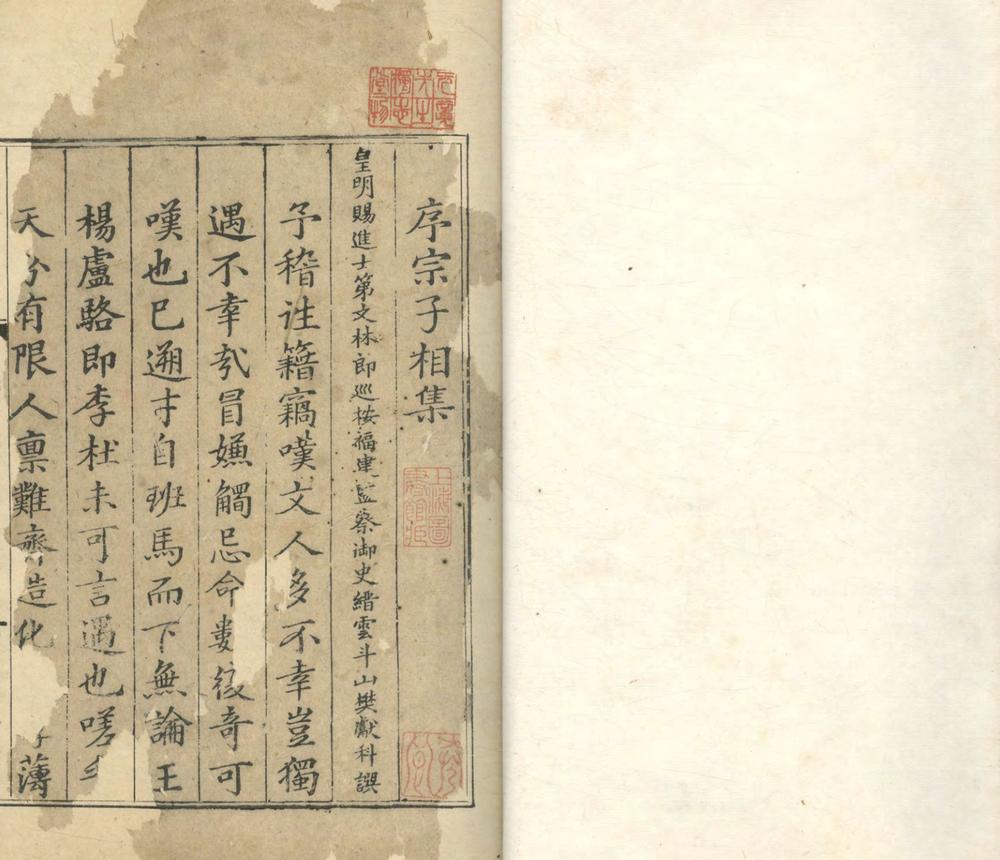 序宗子相集
皇明賜進士第文林郎巡按福建監察御史縉雲斗山樊獻科譔
予稽往籍竊嘆文人多不幸豈獨
遇不幸㢤冒嫌觸忌命數後奇可
嘆也已遡求自班馬而下無論王
楊盧駱即李杜未可言遇也嗟
天分有限人禀難齊造化 予薄
上海圖書館臧